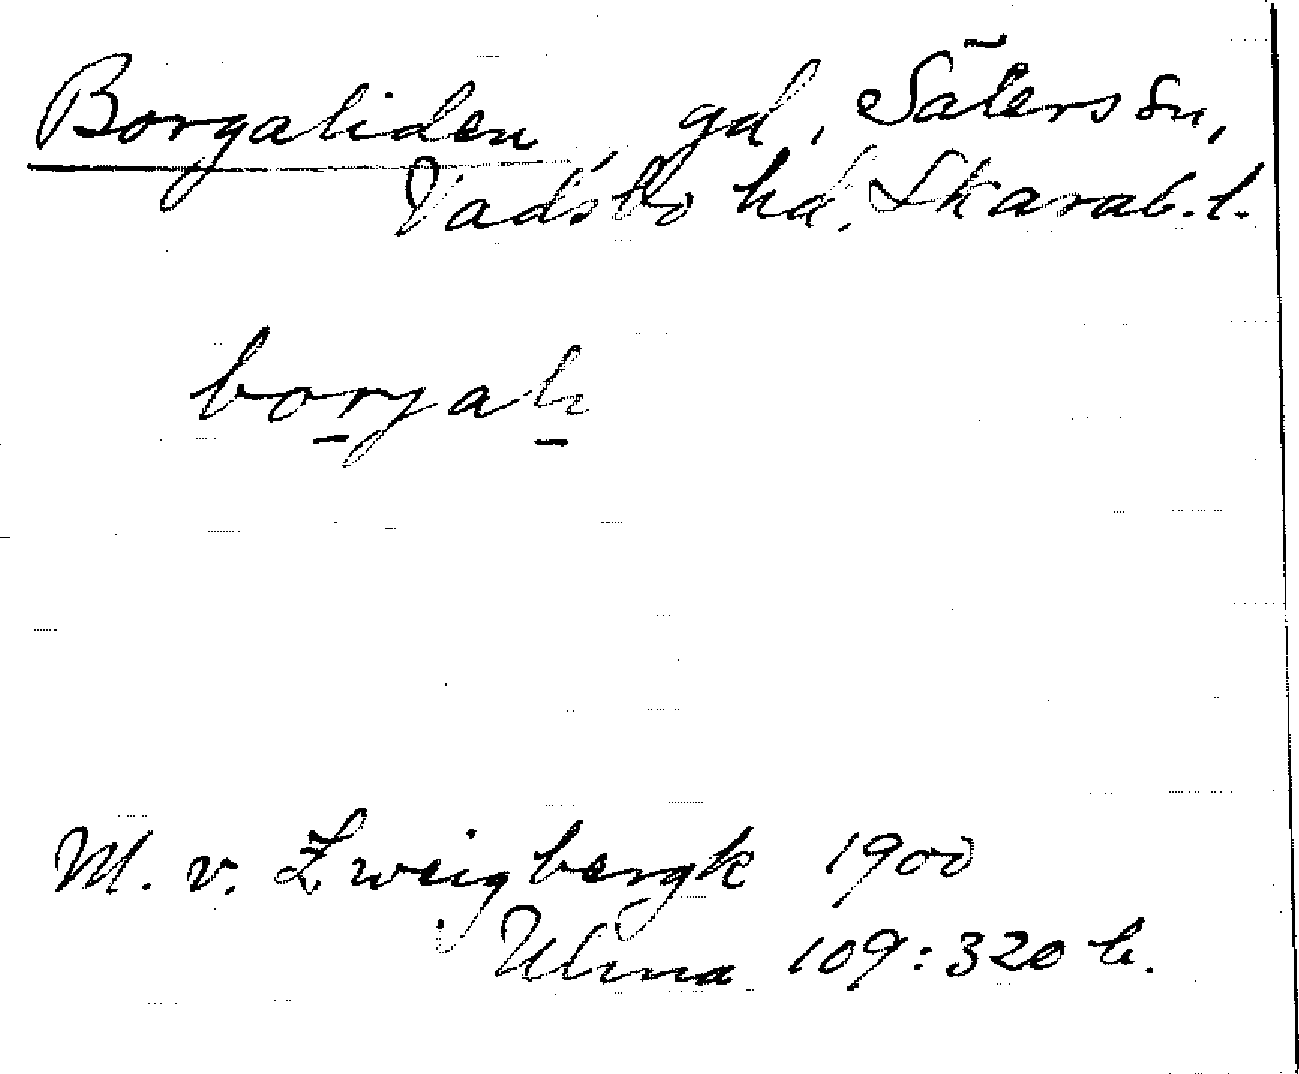 Borgaliden, gd, Säters sn,
Vadsbo hd, Skarab. l.
M. v. Zweigbergk 1900
Ulma 109:320 b.